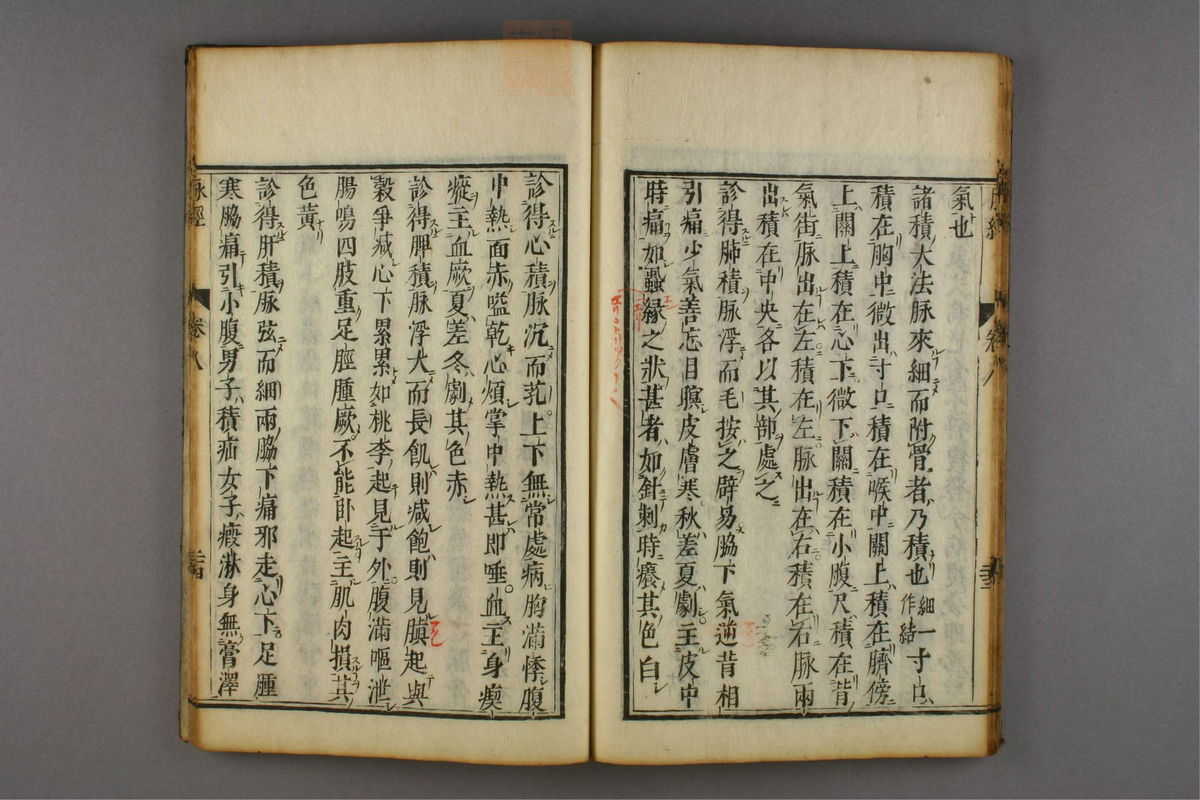 脉經
卷八
三十三
氣也
諸積大法脉來細而附骨者乃積也細一作結寸口
積在胸中微出寸口積在喉中關上積在臍傍
上關上積在心下微下關積在小腹尺積在
氣街脉出在左積在左脉出在右積在右脉兩
出積在中央各以其部處之
診得肺積脉浮而毛按之辟易脇下氣逆背相
引痛少氣善忘目瞑皮膚寒秋差夏劇主皮中
時痛如蝨緣之狀甚者如針刺時癢其色白
診得心積脉沉而芤上下無常處病胸滿悸腹
中熱面赤嗌乾心煩掌中熱甚即唾血主身瘈
瘲主血厥夏差冬劇其色赤
診得脾積脉浮大而長飢則减飽則見䐜起與
穀爭减心下累累如桃李起見于外腹滿嘔泄
腸鳴四肢重足脛腫厥不能卧起主肌肉損其
色黃
診得肝積脉弦而細兩脇下痛邪走心下足腫
寒脇痛引小腹男子積疝女子瘕淋身無膏澤
脉經
卷八
三十四